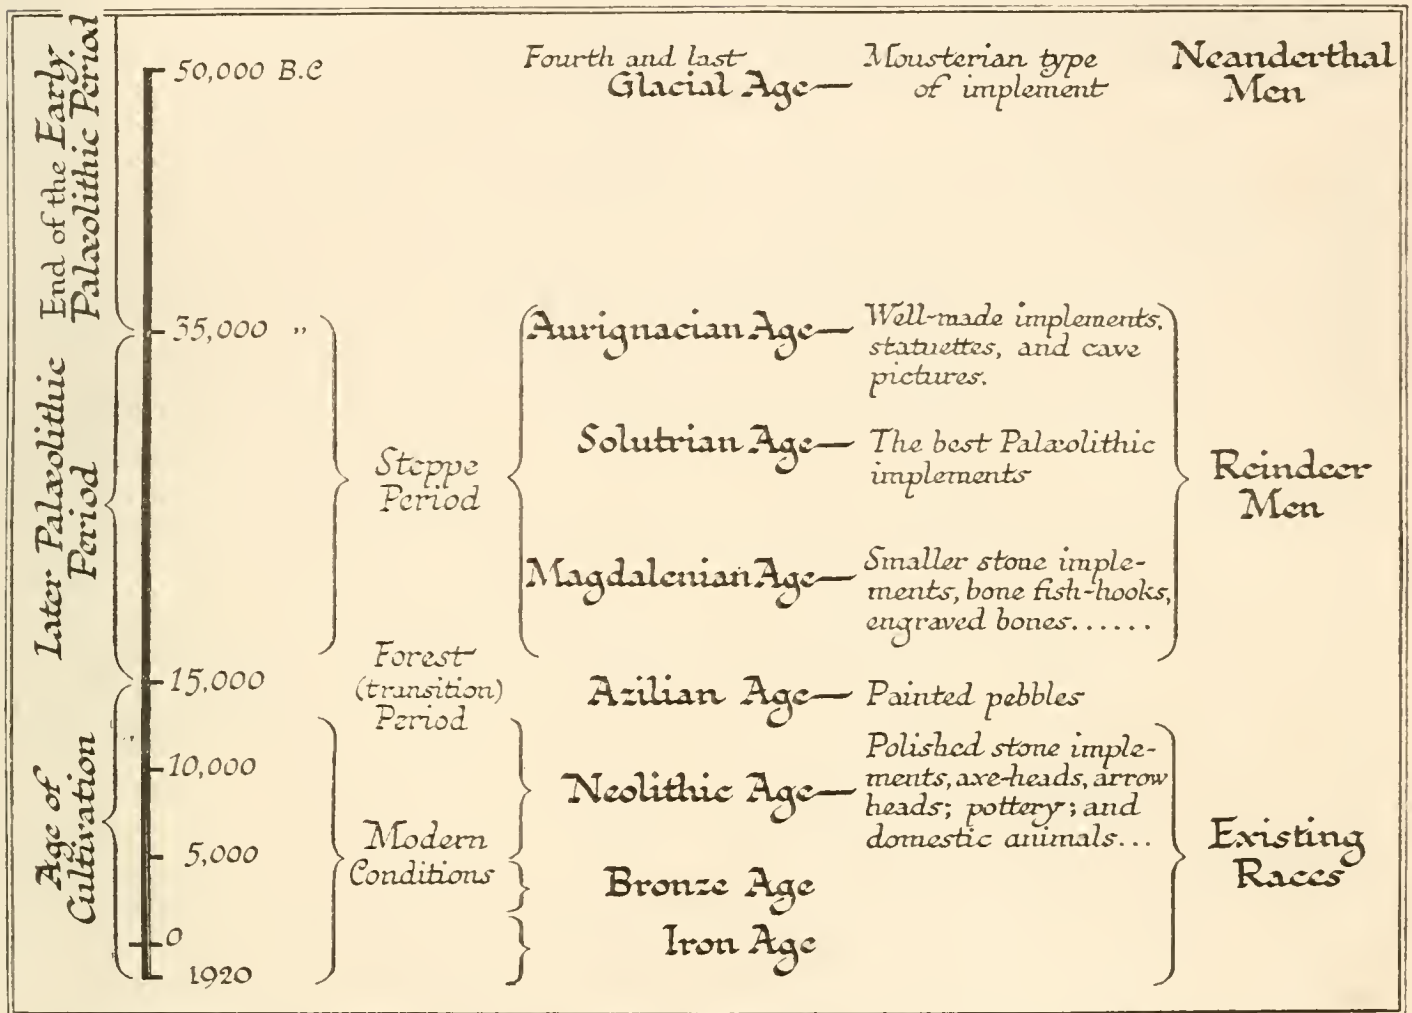 End of the Early
Palæolithic Period
Later Palæolithic
Period
Age of
Cultivation
50,000 B.C
35,000 "
15,000
10,000
5,000
0
1920
Steppe
Period
Forest
(transition)
Period
Modern
Conditions
Fourth and last
Glacial Age—
Mousterian type
of implement
Neanderthal
Men
Aurignacian Age—
Well-made implements,
statuettes, and cave
pictures.
Solutrian Age—
The best Palæolithic
implements
Magdalenian Age—
Smaller stone imple-
ments, bone fish-hooks,
engraved bones......
Reindeer
Men
Azilian Age—
Painted pebbles
Neolithic Age—
Polished stone imple-
ments, axe-heads, arrow
heads; pottery; and
domestic animals...
Bronze Age
Iron Age
Existing
Races